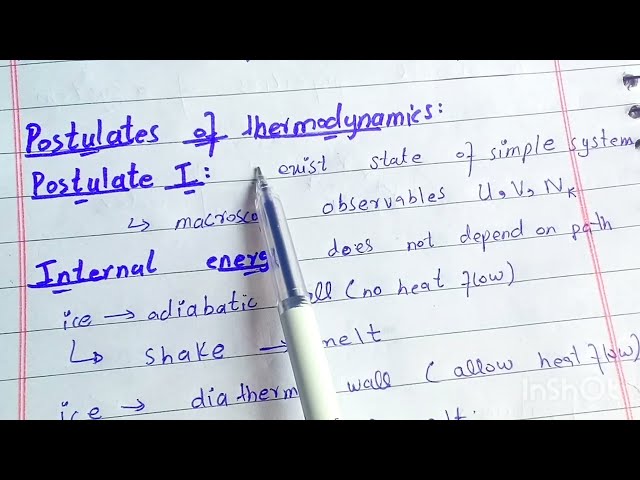 Postulates of thermodynamics:
Postulate I: exist state of simple system
↳ macrosco observables U, V, N_K
Internal energ does not depend on path
ice → adiabatic ll (no heat flow)
↳ shake → melt
ice → diatherm wall (allow heat flow)
InShOt